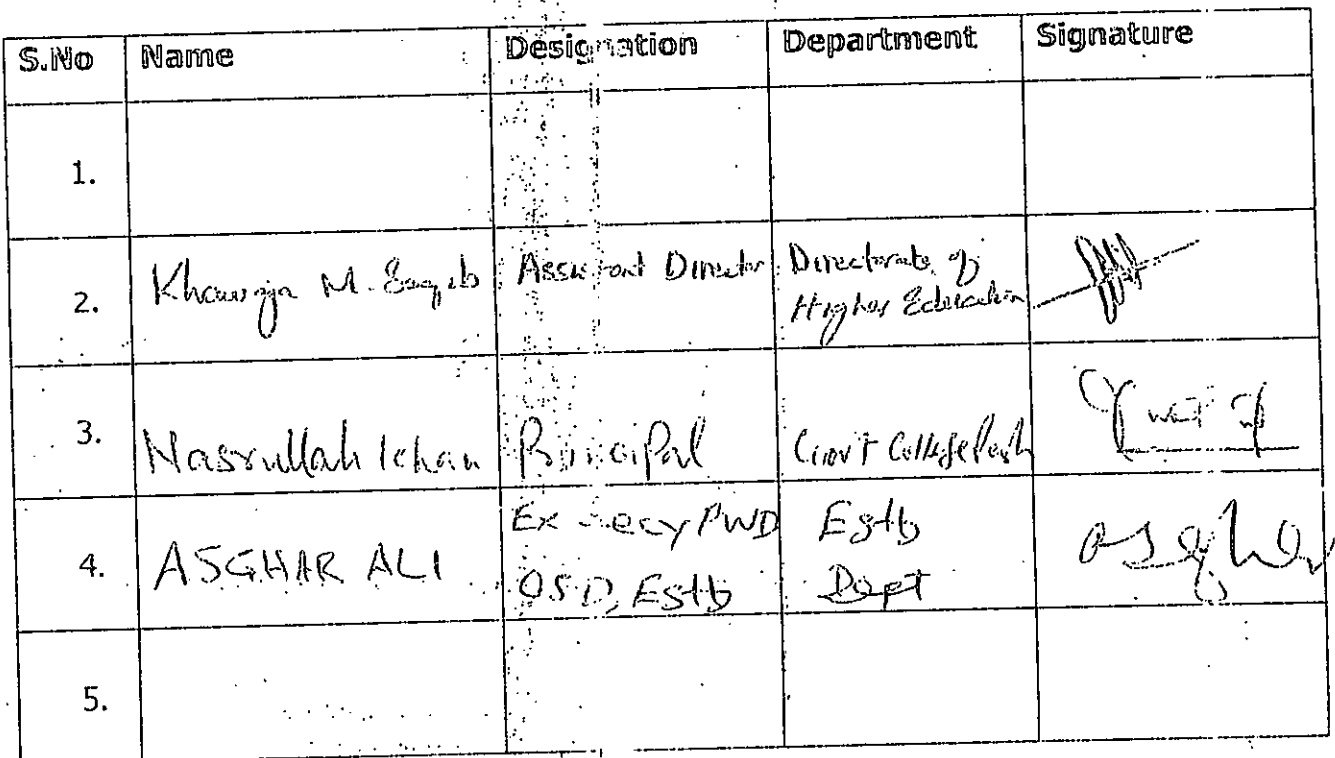 S.No Name Designation Department Signature
1.
2. Khawaja M. Saqib Assistant Director Directorate of
Higher Education
3. Nasrullah Khan Principal Govt College Pesh
4. ASGHAR ALI Ex Secy PWD Estb
OSD, Estb Dept
5.